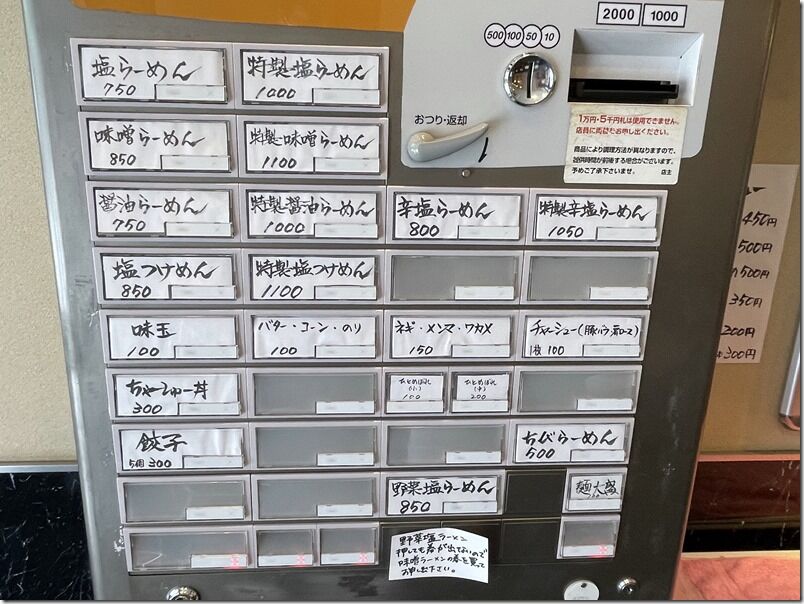 2000 1000
500 100 50 10
おつり・返却
1万円・5千円札は使用できません。
店員に両替をお申し出ください。
商品により調理方法が異なりますので、
提供時間が前後する場合がございます。
予めご了承下さいませ。 店主
塩らーめん
750
特製塩らーめん
1000
味噌らーめん
850
特製味噌らーめん
1100
醤油らーめん
750
特製醤油らーめん
1000
辛塩らーめん
800
特製辛塩らーめん
1050
塩つけめん
850
特製塩つけめん
1100
味玉
100
バター・コーン・のり
100
ネギ・メンマ・ワカメ
150
チャーシュー(豚バラ・肩ロース)
1枚 100
ちゃーしゅー丼
300
(小)
100
(中)
200
餃子
5個 300
ちびらーめん
500
野菜塩らーめん
850
麺大盛
野菜塩ラーメン
押しても券が出てないので
味噌ラーメンの券を買って
お申し出下さい。
450円
500円
500円
350円
200円
+300円